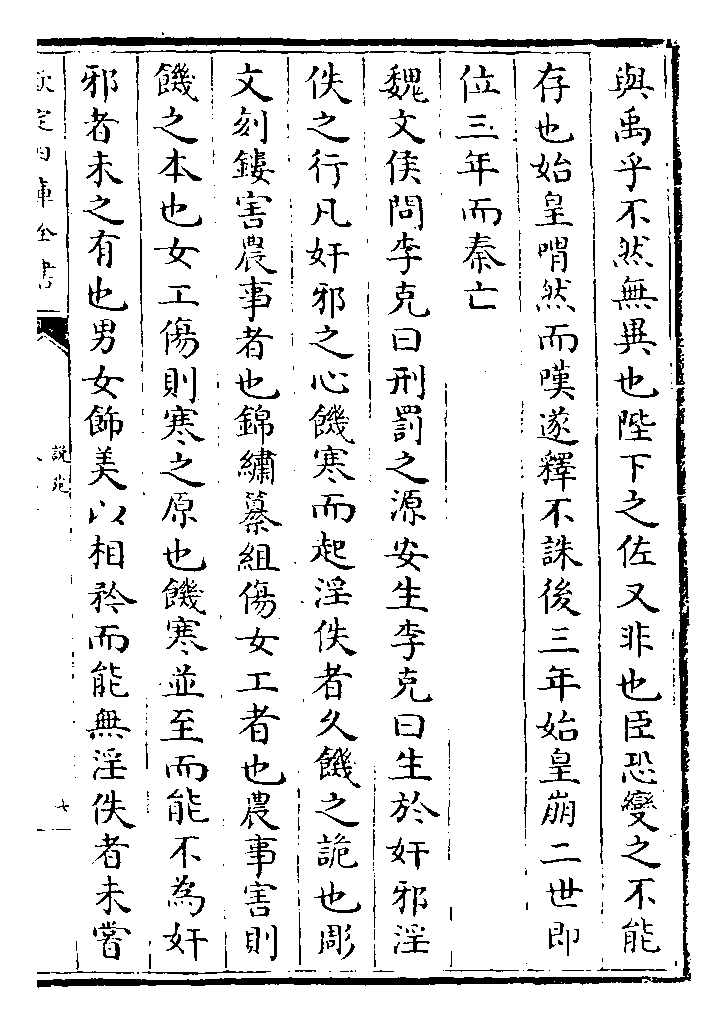 與禹乎不然無異也陛下之佐又非也臣恐變之不能
存也始皇喟然而嘆遂釋不誅後三年始皇崩二世即
位三年而秦亡
魏文侯問李克曰刑罰之源安生李克曰生於奸邪淫
佚之行凡奸邪之心饑寒而起淫佚者久饑之詭也彫
文刻鏤害農事者也錦繡纂組傷女工者也農事害則
饑之本也女工傷則寒之原也饑寒並至而能不為奸
邪者未之有也男女飾美以相矜而能無淫佚者未嘗
欽定四庫全書
說苑
七